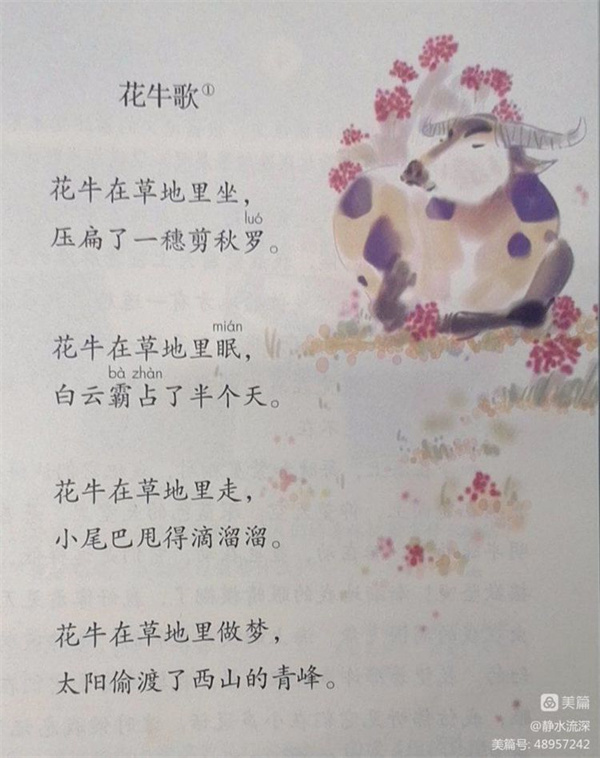 花牛歌①
花牛在草地里坐，
luó
压扁了一穗剪秋罗。
mián
花牛在草地里眠，
bà zhàn
白云霸占了半个天。
花牛在草地里走，
小尾巴甩得滴溜溜。
花牛在草地里做梦，
太阳偷渡了西山的青峰。
美篇
@静水流深
美篇号: 48957242